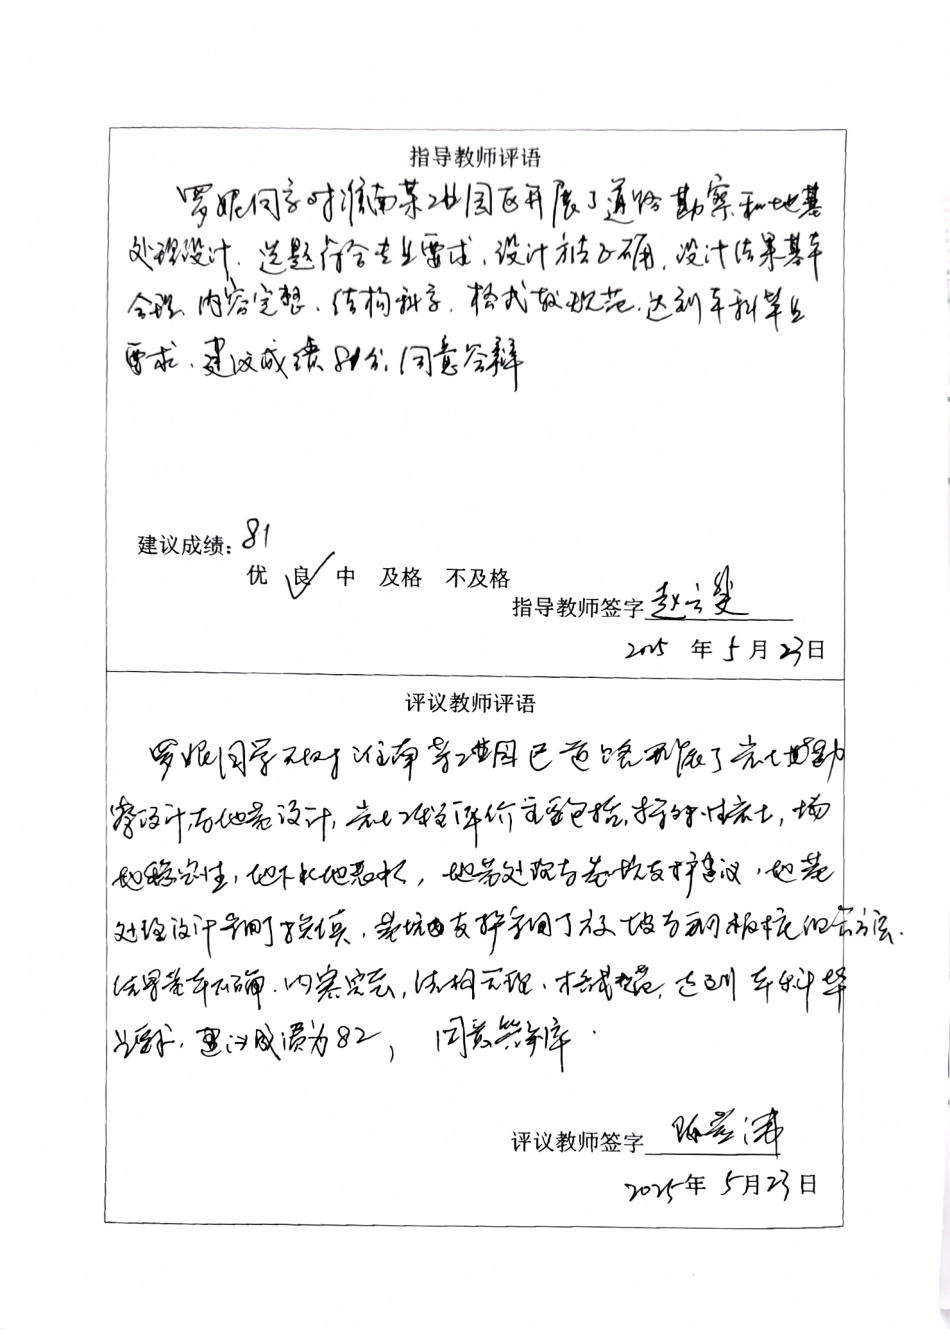 指导教师评语
罗妮同学对淮南某工业园区开展了道路勘察和地基
处理设计.选题符合专业要求,设计方法正确,设计结果基本
合理.内容完整,结构科学,格式较规范,达到本科毕业
要求.建议成绩81分,同意答辩
建议成绩:81
优 良 中 及格 不及格
指导教师签字 赵
2025 年 5 月 23 日
评议教师评语
罗妮同学 对淮南某工业园区道路开展了岩土勘
察设计与地基设计,岩土工程评价主要包括,特殊性岩土,场
地稳定性,地下水 ,地基处理与基坑支护建议,地基
处理设计采用了换填,基坑支护采用了放坡与 的方法.
结果基本正确.内容完整,结构合理.格式规范,达到本科毕
业要求,建议成绩为82, 同意答辩.
评议教师签字
2025年 5月23日